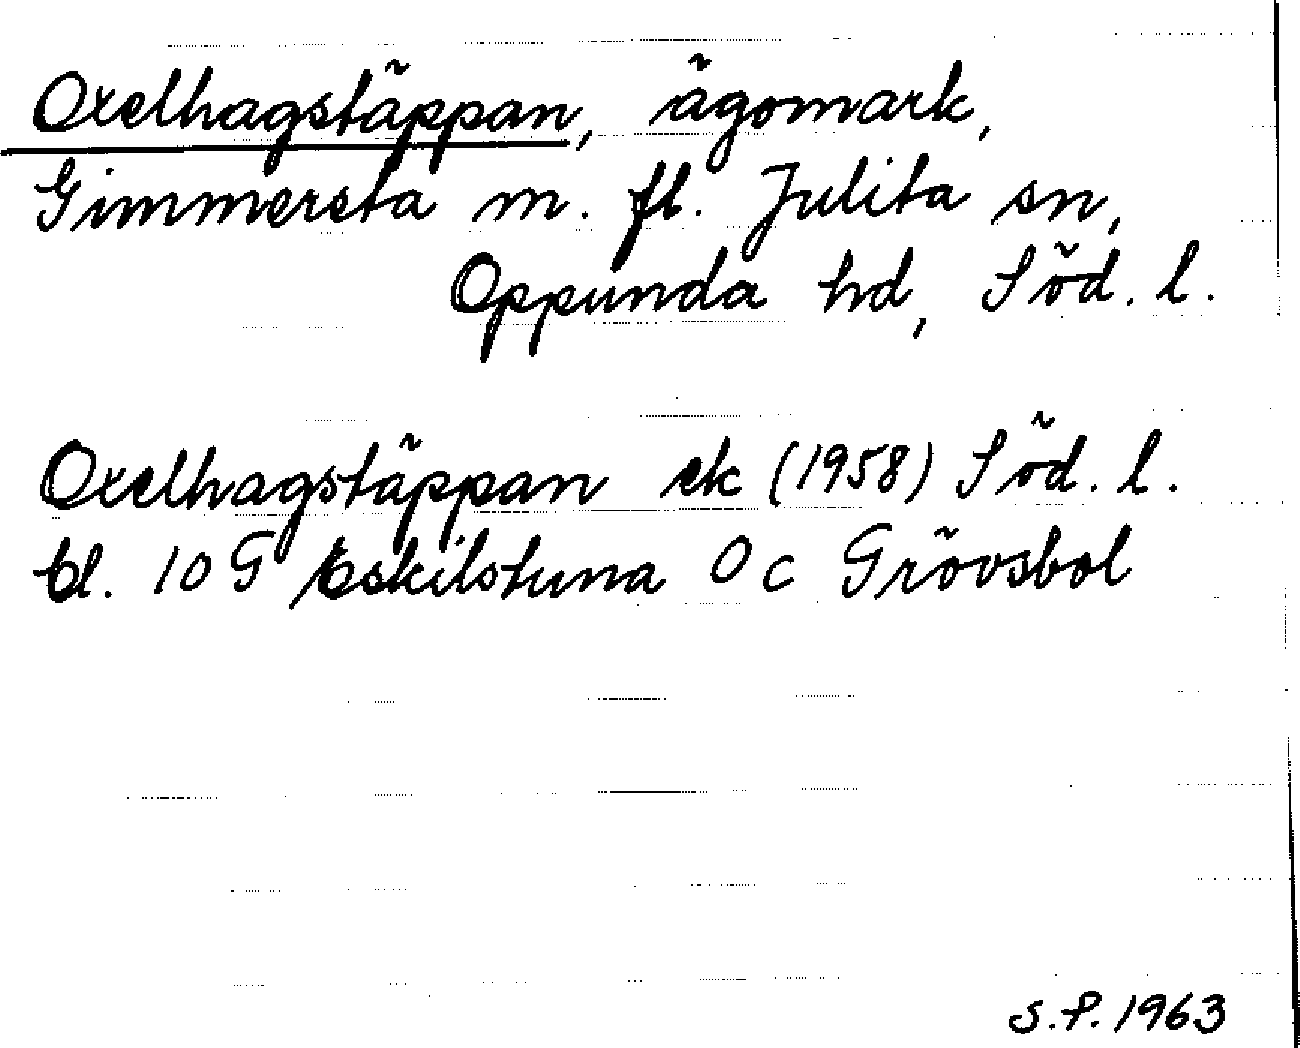 Oxelhagstäppan, ägomark,
Gimmersta m. fl. Julita sn,
Oppunda hd, Söd. l.
Oxelhagstäppan ek (1958) Söd. l.
bl. 10 G Eskilstuna 0 c Grövsbol
S.P. 1963